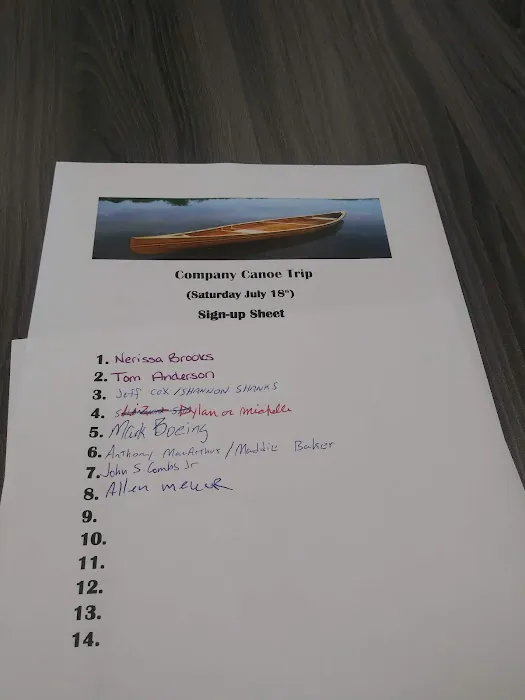 Company Canoe Trip
(Saturday July 18th)
Sign-up Sheet
1. Nerissa Brooks
2. Tom Anderson
3. Jeff Cox / SHANNON SHANKS
4. Dylan or Michelle
5. Mark Boeing
6. Anthony MacArthur / Maddie Baker
7. John S Combs Jr
8. Allen
9.
10.
11.
12.
13.
14.